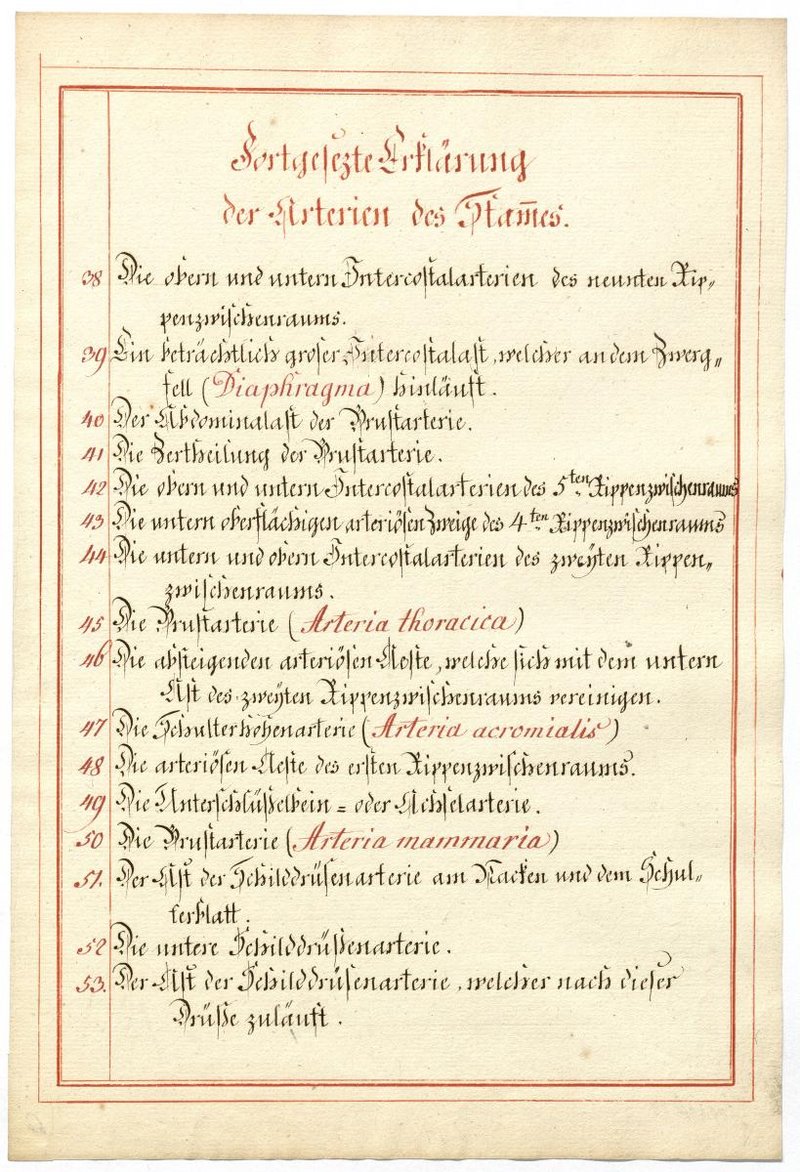 Fortgesezte Erklärung
der Arterien des Stam̅es.
38 Die obern und untern Intercostalarterien des neunten Rip„
penzwischenraums.
39 Ein beträchtlich groser Intercostalast, welcher an dem Zwerg„
fell (Diaphragma) hinläuft.
40 Der Abdominalast der Brustarterie.
41 Die Zertheilung der Brustarterie.
42 Die obern und untern Intercostalarterien des 5ten Rippenzwischenraums
43 Die untern oberflächigen arteriösen Zweige des 4ten Rippenzwischenraums
44 Die untern und obern Intercostalarterien des zweÿten Rippen„
zwischenraums.
45 Die Brustarterie (Arteria thoracica)
46 Die absteigenden arteriösen Aeste, welche sich mit dem untern
Ast des zweÿten Rippenzwischenraums vereinigen.
47 Die Schulterhöhenarterie (Arteria acromialis)
48 Die arteriösen Aeste des ersten Rippenzwischenraums.
49 Die Unterschlüßelbein = oder Achselarterie.
50 Die Brustarterie (Arteria mammaria)
51. Der Ast der Schilddrüsenarterie am Nacken und dem Schul„
terblatt.
52 Die untere Schilddrüßenarterie.
53. Der Ast der Schilddrüsenarterie, welcher nach dieser
Drüße zuläuft.